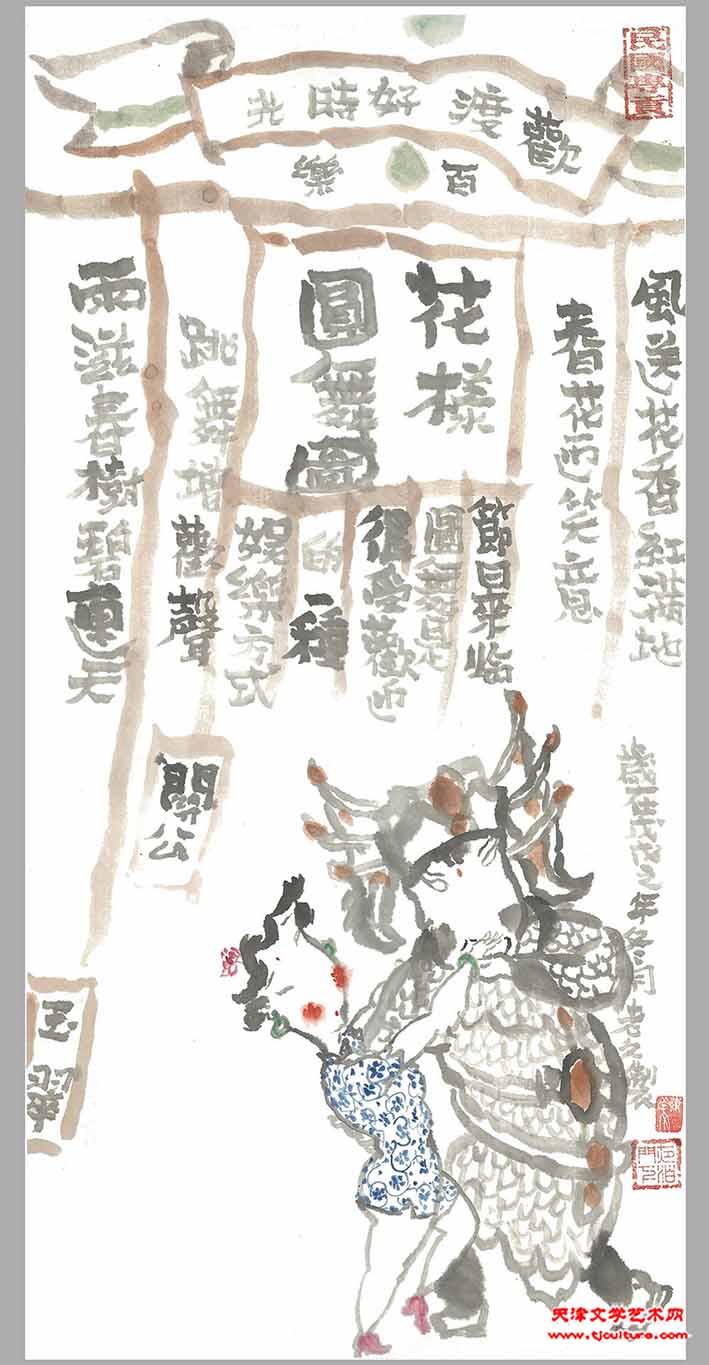 歡渡好時光
百樂
風送花香紅滿地
春花迎笑意
花樣
圓舞圖
跳舞增歡聲
雨滋春樹碧連天
節日來临
圓舞是
很受歡迎
的一種
娛樂方式
關公
玉翠
歲在戊戌之年冬月老久製
天津文学艺术网
www.tjculture.com